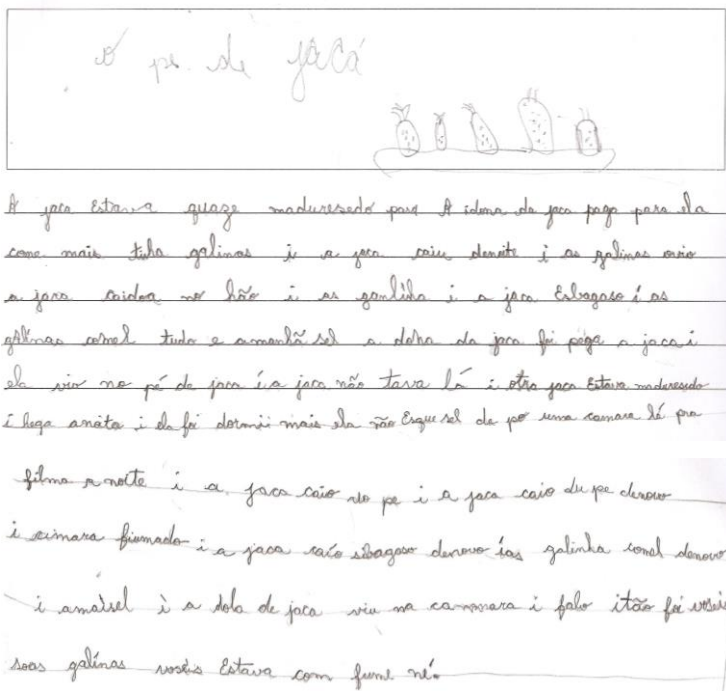 o pe de jáca
A jaca Estava quaze maduresedo para A idona da jaca pega para ela
come mais tinha galinas i a jaca caiu denoite i as galinas
a jaca caidoa no hão i as ganliha i a jaca Esbagaso i as
galinas comel tudo e amanhã sel a dona da jaca foi pega a jaca i
ela vio no pé de jaca i a jaca não tava lá i otra jaca Estava maduresedo
i hega anoita i ela foi dormii mais ela não Esque sel de po uma camara lá pra
filma a noite i a jaca caio do pe i a jaca caio du pe denovo
i cimara fiumado i a jaca caio sibagaso denovo ias galinha comel denovo
i amaisel i a dola de jaca viu na cammara i falo itão foi voseis
suas galinas voséis Estava com fume né.